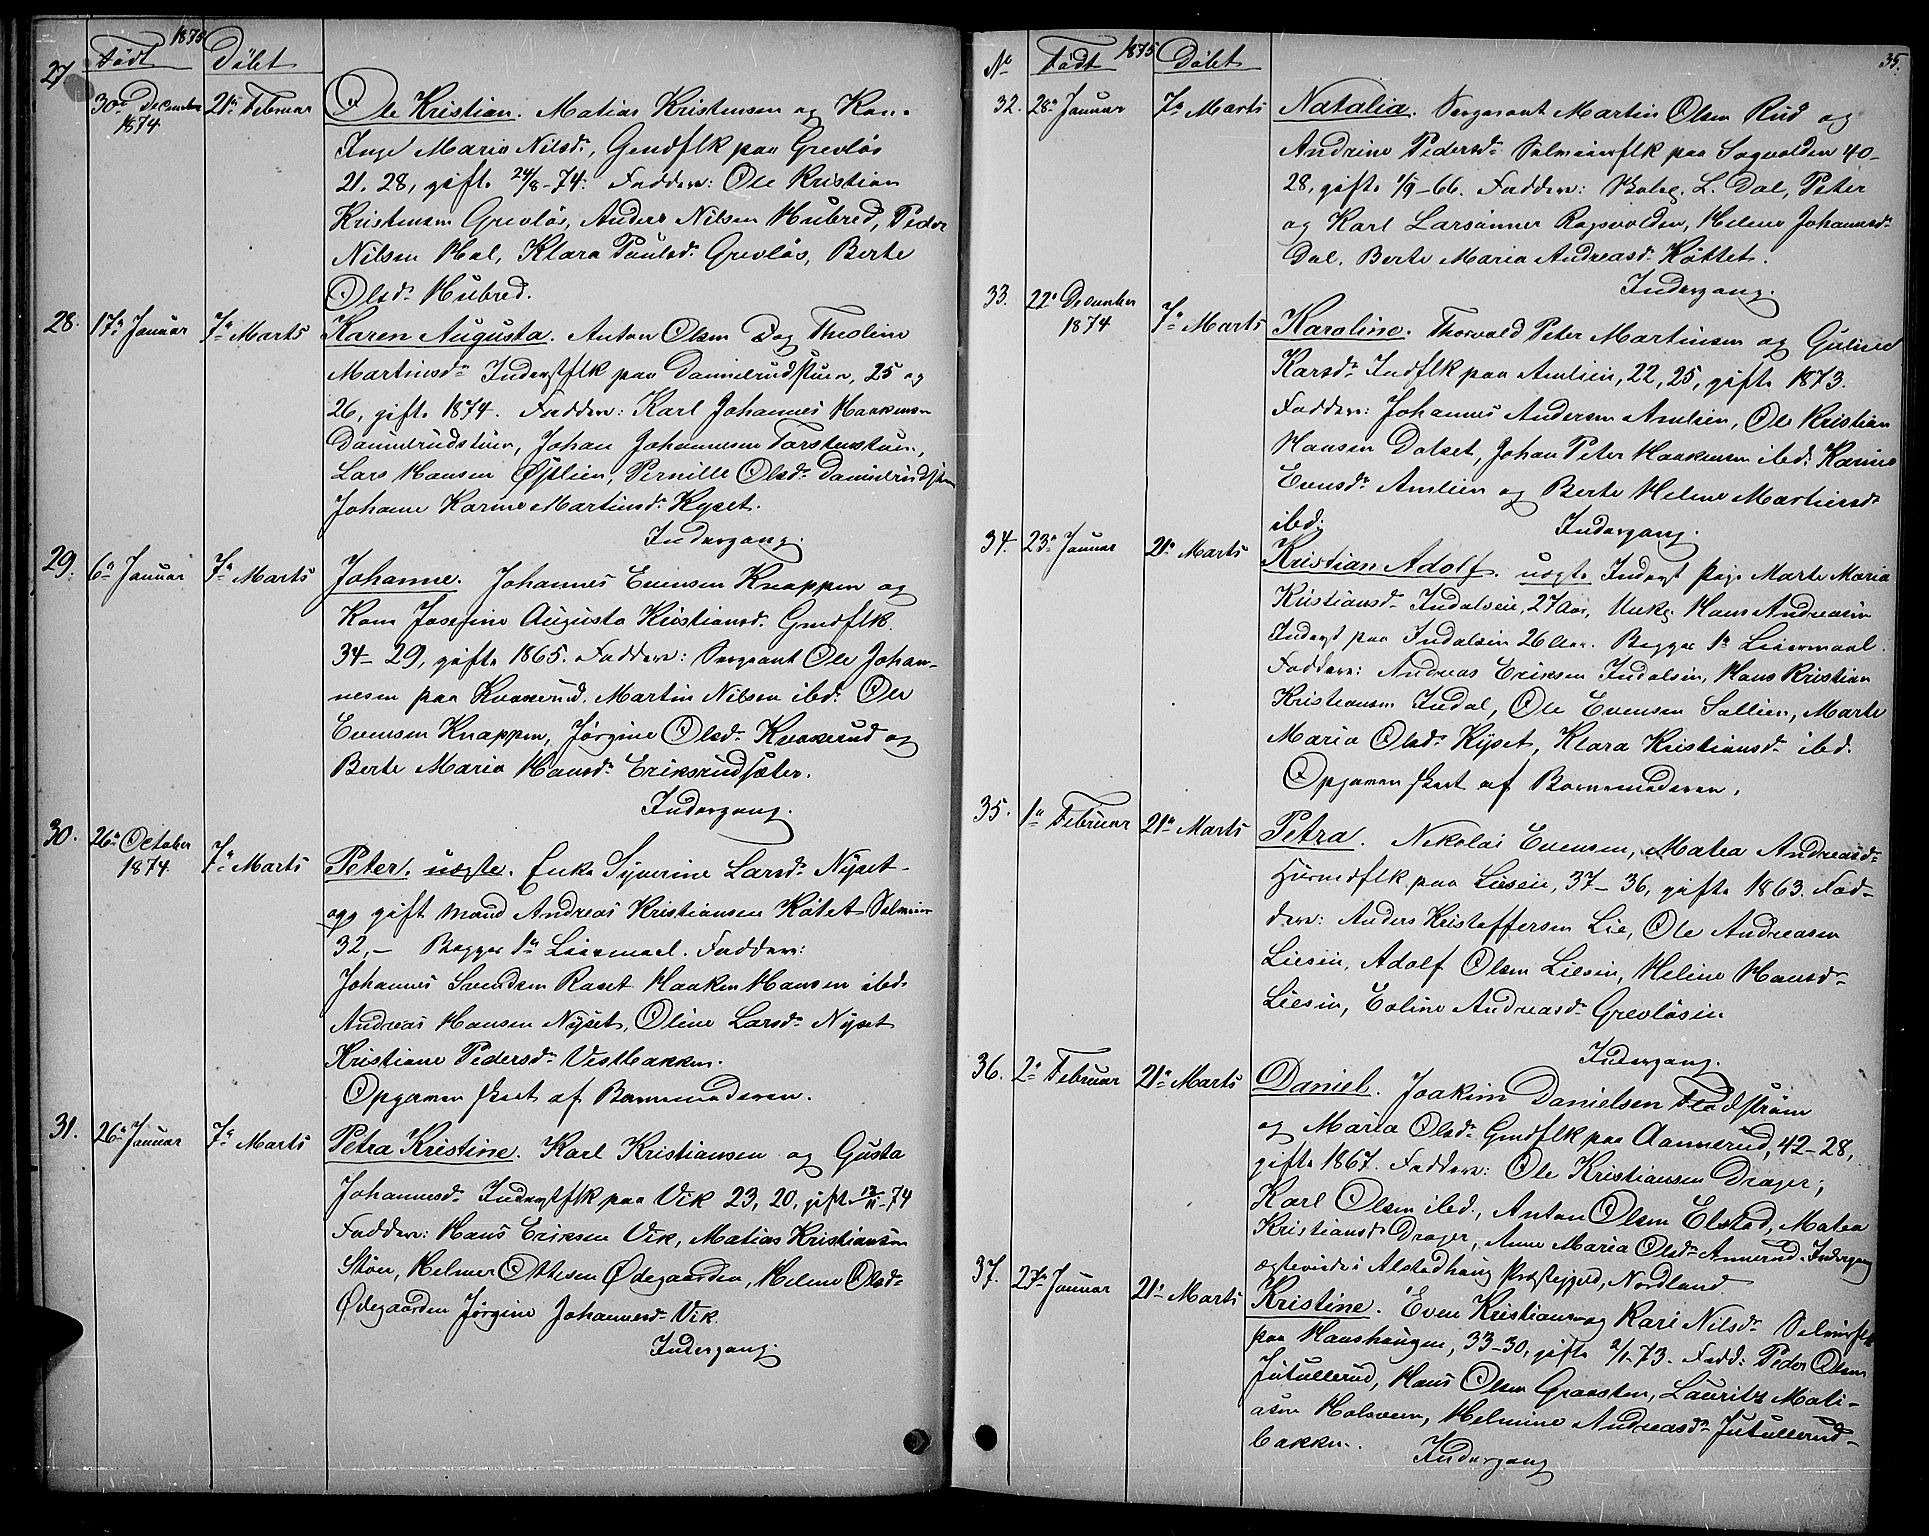 1875
Født Døbt
27
30te December 21de Februar Ole Kristian. Matias Kristensen og Kone
1874
Inge Marie Nilsdr, Gmdflk paa Grevløs
21. 28, gifte 24/8-74. Faddere: Ole Kristian
Kristensen Grevløs, Anders Nilsen Hubred, Peder
Nilsen Hol, Klara Paulsdr Grevløs, Berte
Olsdr Hubred.
28. 17de Januar 7de Marts Karen Augusta. Anton Olsen Dag Theoline
Martinsdr Inderstflk paa Danielrudstuen, 25 og
26, gifte 1874. Faddere: Karl Johannes Haakensen
Danielrudstuen, Johan Johannesen Torstenstuen,
Lars Hansen Østlien, Pernille Olsdr Danielrudstuen
Johanne Karine Martinsdr Kyset.
Indergang.
29. 6te Januar 7de Marts Johanne. Johannes Evensen Knappen og
Kone Josefine Augusta Kristiansdr Gmdflk.
34-29, gifte 1865. Faddere: Sergeant Ole Johan-
nesen paa Kvakerud. Martin Nilsen ibd. Ole
Evensen Knappen, Jørgine Olsdr Kvakerud og
Berte Maria Hansdr Eriksrudsæter.
Indergang.
30. 26de October 7de Marts Peter. uægte. Enke Syverine Larsdr Nyset
1874.
og gift Mand Andreas Kristiansen Køtet Selveier
32,- Begges 1ste Leiermaal. Faddere:
Johannes Svendsen Raset Haaken Hansen ibd.
Andreas Hansen Nyset, Oline Larsdr Nyset
Kristiane Pedersdr Vestbakken.
Opgaven skeet af Barnemoderen.
31. 26de Januar 7de Marts Petra Kristine. Karl Kristiansen og Gusta
Johannesdr Inderstflk paa Vik 23, 20, gifte 12/11-74
Faddere: Hans Eriksen Vik, Matias Kristiansen
Støen, Helmer Ottesen Ødegaarden, Helene Olsdr
Ødegaarden Jørgine Johannesdr Vik.
Indergang.
35.
No Født 1875 Døbt
32. 28de Januar 7de Marts Natalia. Sergeant Martin Olsen Rud og
Andrine Pedersdr Selveierflk paa Sagvolden 40-
28, gifte 1/9-66. Faddere: L. Dal, Peter
og Karl Larsønner Ragsvolden, Helene Johannesdr
Dal. Berte Maria Andreasdr Køttet.
Indergang.
33. 22de December 7de Marts Karoline. Thorvald Peter Martinsen og Guline
1874
Larsdr Indflk paa Amlien, 22, 25, gifte 1873.
Faddere: Johannes Andersen Amlien, Ole Kristian
Hansen Dalset, Johan Peter Haakensen ibd. Karine
Evensdr Amlien og Berte Helene Martinsdr
ibd. Indergang.
34. 23de Januar 21de Marts Kristian Adolf. uægte Inderst Pige Marte Maria
Kristiansdr Indalseie, 27 Aar, Unkg Hans Andreasen
Inderst paa Indalseie 26 Aar. Begges 1ste Leiermaal.
Faddere: Andreas Eriksen Indalseie, Hans Kristian
Kristiansen Indal, Ole Evensen Sollien, Marte
Maria Olsdr Kyset, Klara Kristiansdr ibd.
Opgaven skeet af Barnemoderen.
35. 1ste Februar 21de Marts Petra. Nikolai Evensen, Matea Andreasdr
Husmdflk paa Lieseie, 37-36, gifte 1863. Fad-
dere: Anders Kristoffersen Lie, Ole Andreasen
Lieseie, Adolf Olsen Lieseie, Heline Hansdr
Lieseie, Eoline Andreasdr Grevløseie
Indergang.
36. 2de Februar 21de Marts Daniel. Joakim Danielsen Flodstrøm
og Maria Olsdr Gmdflk paa Aannerud, 42-28,
gifte 1867. Faddere: Ole Kristiansen Drager,
Karl Olsen ibd., Anton Olsen Elstad, Matea
Kristiansdr Drager, Anne Maria Olsdr Annerud. Indergang
ægteviede i Alstadhaug Præstegjeld, Nordland.
37. 27de Januar 21de Marts Kristine. Even Kristiansen og Kari Nilsdr Selveierflk
paa Hanshaugen, 33-30, gifte 2/1-73. Fadd: Peder Olsen
Jutullerud, Hans Olsen Graasten, Laurits Mati-
asen Holsveen, Helmine Andreasdr Jutullerud-
bakken. Indergang